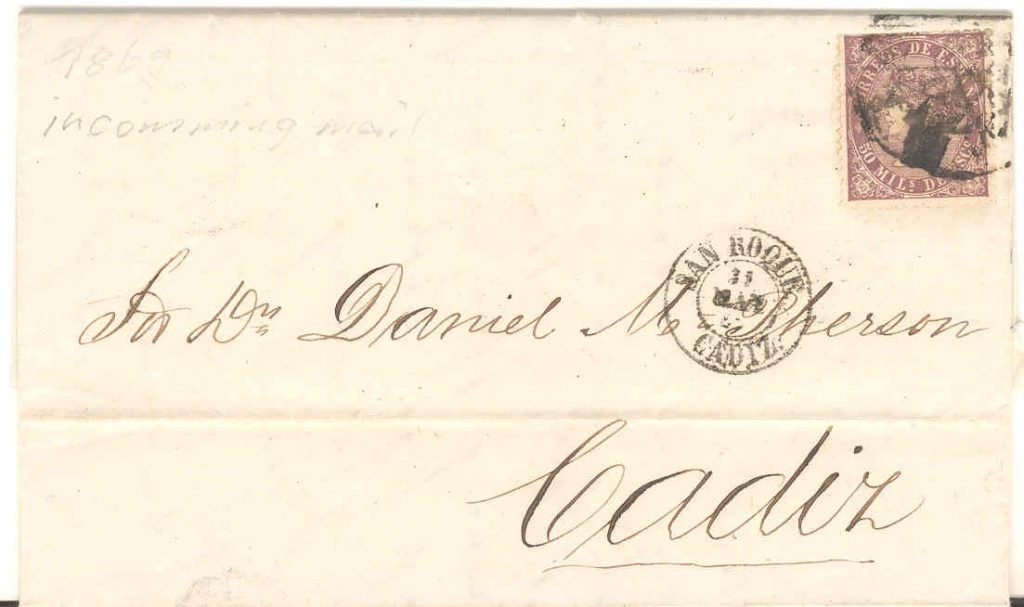 1869
incomming mail
CORREOS DE ESPAÑA
50 MILS DE ESCO
SAN ROQUE
31
MAR
CADIZ
Sor Dn Daniel Mc Pherson
Cadiz